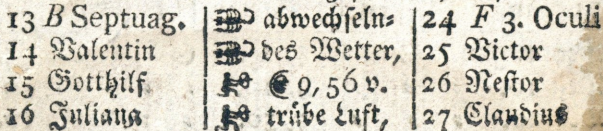 13 B Septuag. abwechseln= 24 F 3. Oculi
14 Valentin des Wetter, 25 Victor
15 Gotthilf 9, 56 v. 26 Nestor
16 Juliana trübe Luft, 27 Claudius